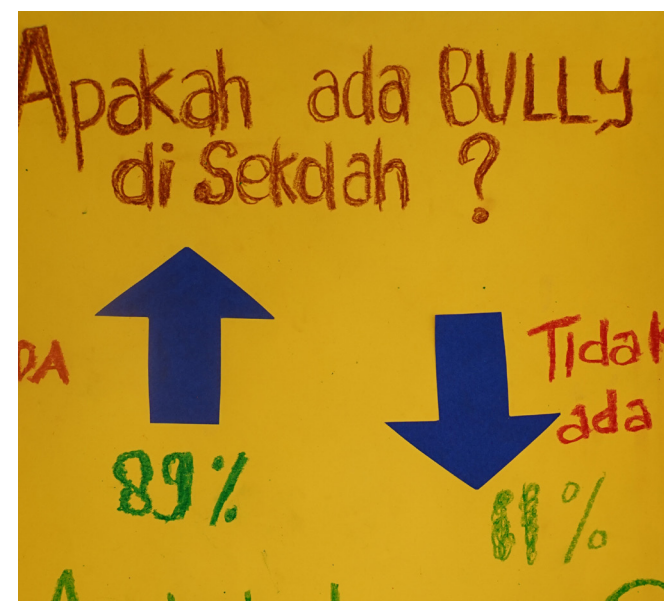 Apakah ada BULLY
di Sekolah ?
DA
Tidak
ada
89%
11%